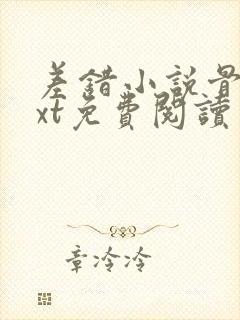 差錯小説景
xt免費閱讀
章冷冷